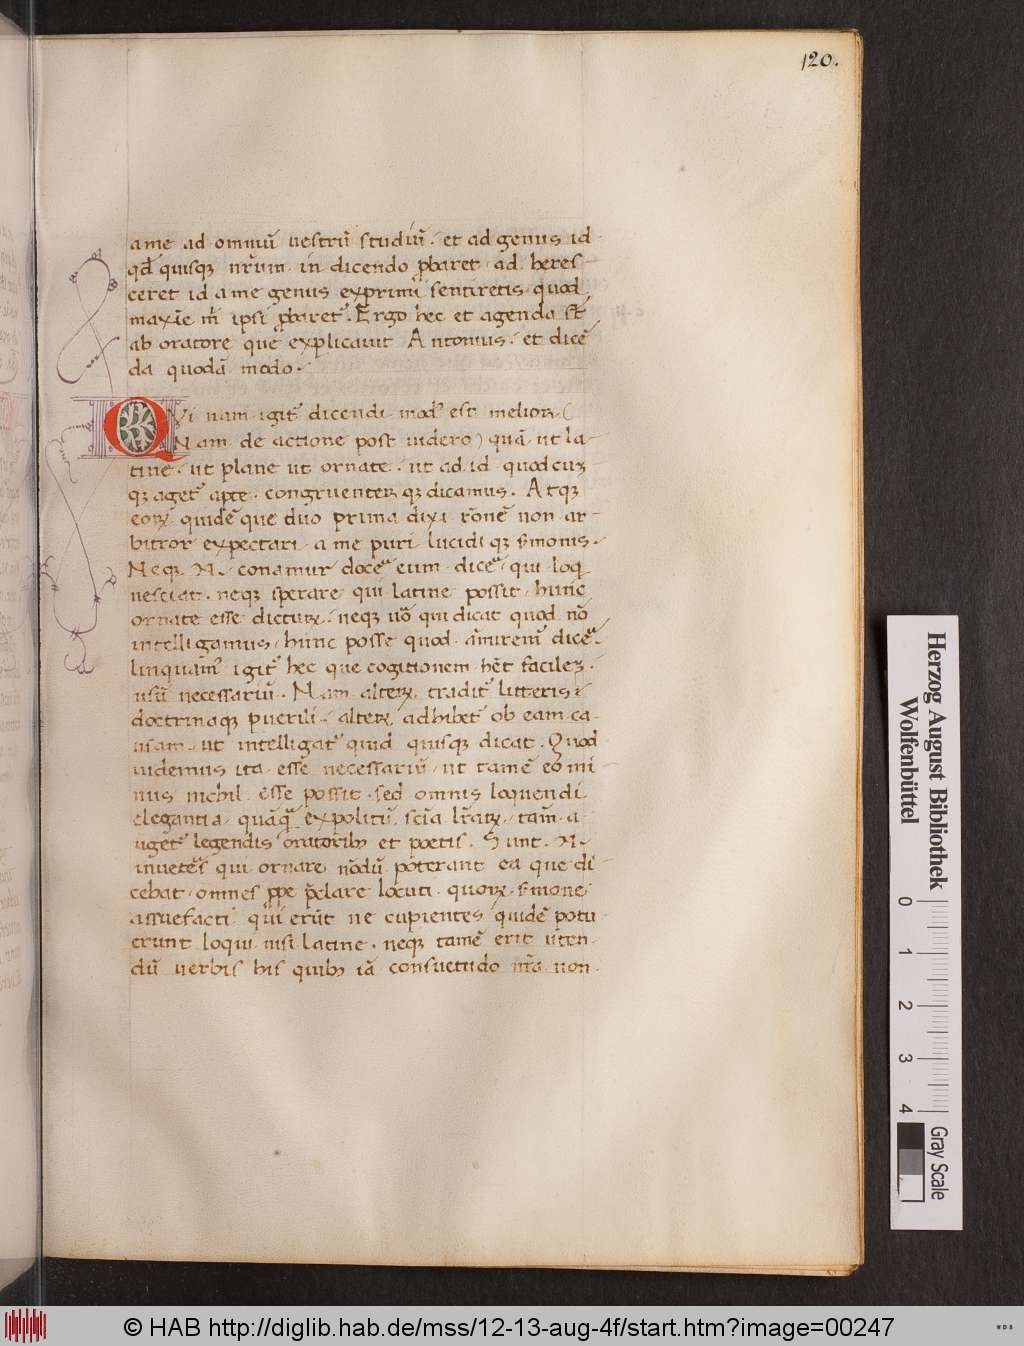 120.
a me ad omniū uestrū studiū. et ad genus id
qđ quisqꝫ nr̄um in dicendo ꝓbaret ad heres
ceret id a me genus exprimi sentiretis quod
maxīe m̄ ipsi ꝓbaret᷑. Ergo hec et agenda st̄
ab oratore que explicauit Antonius. et dicē
da quodā modo.
QVi nam igit᷑ dicendi mod᷒ est melior (
Nam de actione post uidero) quā ut la
tine. ut plane ut ornate. ut ad id quodcuꝫ
qꝫ aget᷑ apte. congruenter qꝫ dicamus. Atqꝫ
eoꝝ quidē que duo prima dixi rōnē non ar
bitror expectari a me puri lucidi qꝫ s̄monis.
Neqꝫ .N. conamur docē eum dicē qui loq
nesciat. neqꝫ sperare qui latine possit hunc
ornate esse dicturꝫ. neqꝫ uō qui dicat quod nō
intelligamus hunc posse quod am̄iremꝰ dicē.
linquamꝰ igit᷑ hec que cogitionem hn̄t facileꝫ.
usū necessariū. Nam alterꝫ tradit᷑ litteris
doctrinaqꝫ puerili. alterꝫ adhibet᷑ ob eam ca
usam. ut intelligat᷑ quid quisqꝫ dicat. Quod
uidemus ita esse necessariū ut tamē eo mi
nus nichil esse possit. sed omnis loquendi
elegantia quāqꝫ expolit᷑ scīa lr̄aꝝ. tam̄ a
uget᷑ legendis oratoribꝫ et poetis. Sunt .N.
inuetēs qui ornare nōdū poterant ea que di
cebat omnes ꝓpe p̄clare locuti. quoꝝ s̄mone
assuefacti qui erūt ne cupientes quidē potu
erunt loqui nisi latine. neqꝫ tamē erit uten
dū uerbis his quibꝫ iā consuetudo nr̄a non.
Herzog August Bibliothek
Wolfenbüttel
0 1 2 3 4
Gray Scale
© HAB http://diglib.hab.de/mss/12-13-aug-4f/start.htm?image=00247